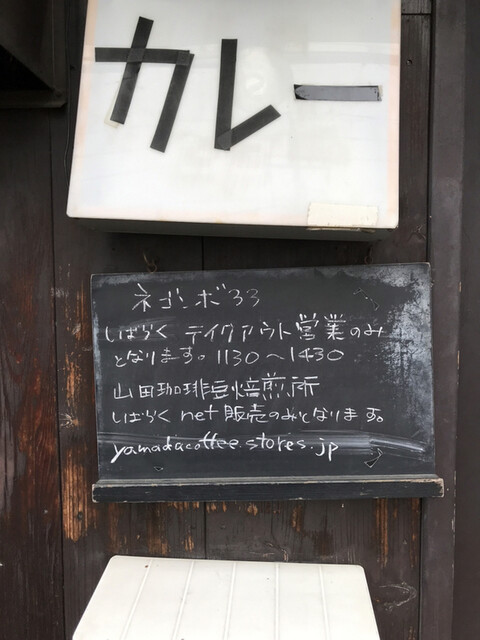 カレー
ネゴンボ33
しばらく テイクアウト営業のみ
となります。1130〜1430
山田珈琲豆焙煎所
しばらく net 販売のみとなります。
yamadacoffee.stores.jp